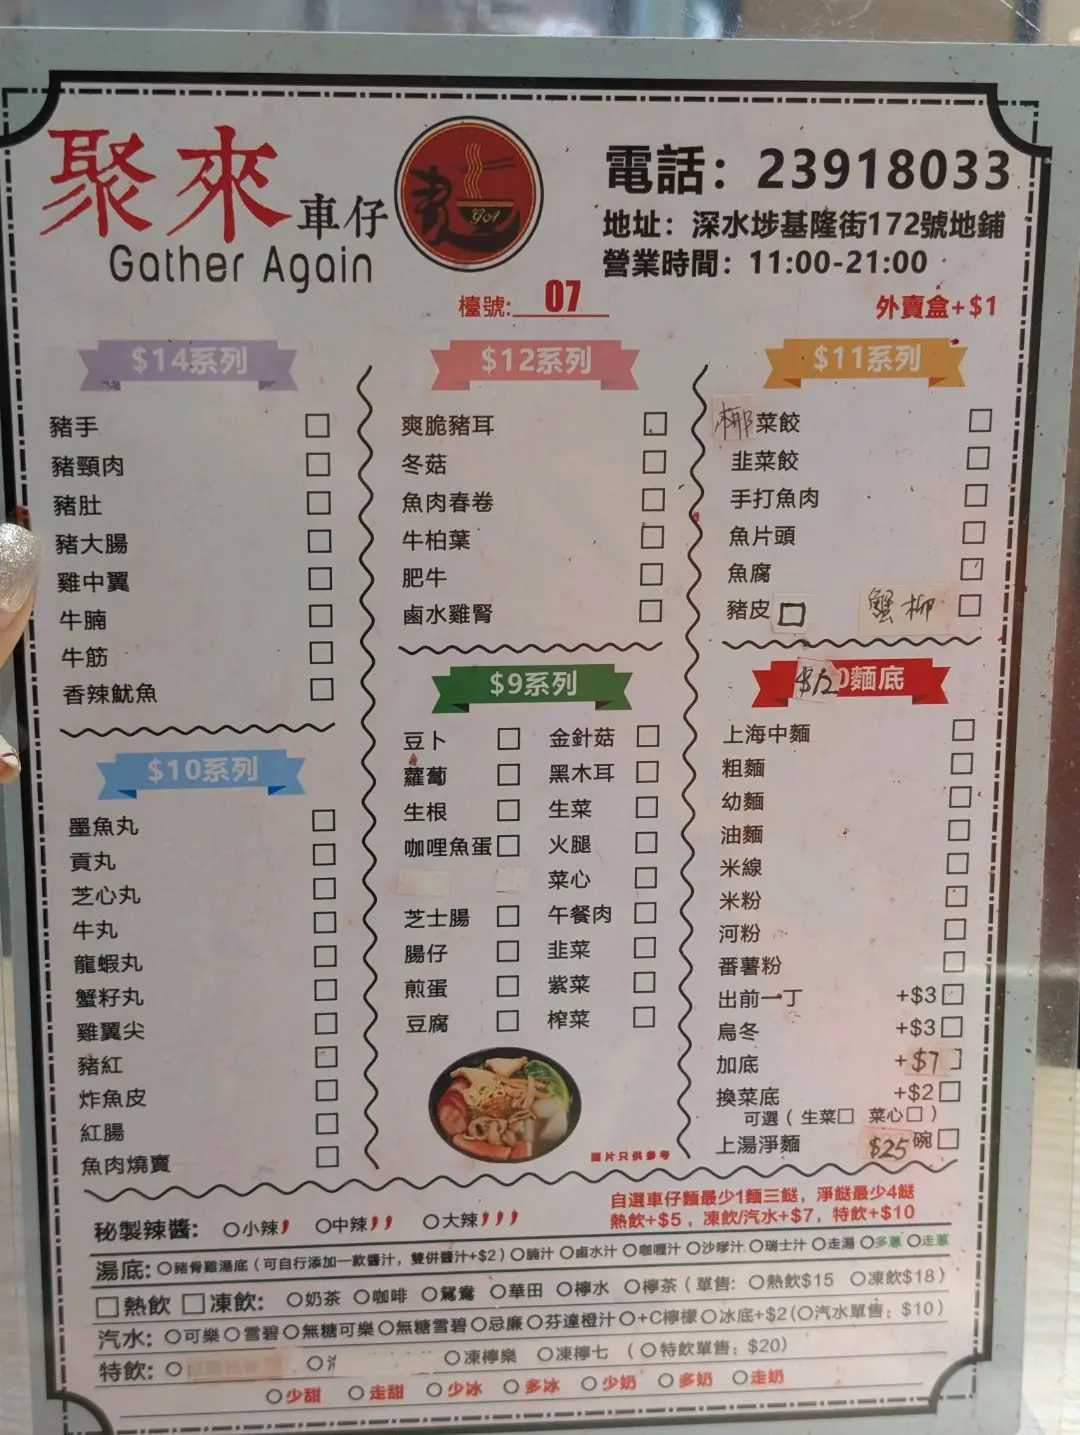 聚來車仔
Gather Again
GOA
電話：23918033
地址：深水埗基隆街172號地鋪
營業時間：11:00-21:00
檯號: 07
外賣盒+$1
$14系列
豬手
豬頸肉
豬肚
豬大腸
雞中翼
牛腩
牛筋
香辣魷魚
$10系列
墨魚丸
貢丸
芝心丸
牛丸
龍蝦丸
蟹籽丸
雞翼尖
豬紅
炸魚皮
紅腸
魚肉燒賣
$12系列
爽脆豬耳
冬菇
魚肉春卷
牛柏葉
肥牛
鹵水雞腎
$9系列
豆卜
蘿蔔
生根
咖哩魚蛋
芝士腸
腸仔
煎蛋
豆腐
金針菇
黑木耳
生菜
火腿
菜心
午餐肉
韭菜
紫菜
榨菜
圖片只供參考
$11系列
椰菜餃
韭菜餃
手打魚肉
魚片頭
魚腐
豬皮 蟹柳
$12麵底
上海中麵
粗麵
幼麵
油麵
米線
米粉
河粉
番薯粉
出前一丁 +$3
烏冬 +$3
加底 +$7
換菜底 +$2
可選（生菜 菜心）
上湯淨麵 $25碗
自選車仔麵最少1麵三餸，淨餸最少4餸
熱飲+$5，凍飲/汽水+$7，特飲+$10
秘製辣醬: 小辣 中辣 大辣
湯底: 豬骨雞湯底（可自行添加一款醬汁，雙併醬汁+$2）腩汁 鹵水汁 咖喱汁 沙嗲汁 瑞士汁 走湯 多蔥 走蔥
熱飲 凍飲: 奶茶 咖啡 鴛鴦 華田 檸水 檸茶（單售: 熱飲$15 凍飲$18）
汽水: 可樂 雪碧 無糖可樂 無糖雪碧 忌廉 芬達橙汁 +C檸檬 冰底+$2（汽水單售：$10）
特飲: 凍檸樂 凍檸七 （特飲單售：$20）
少甜 走甜 少冰 多冰 少奶 多奶 走奶